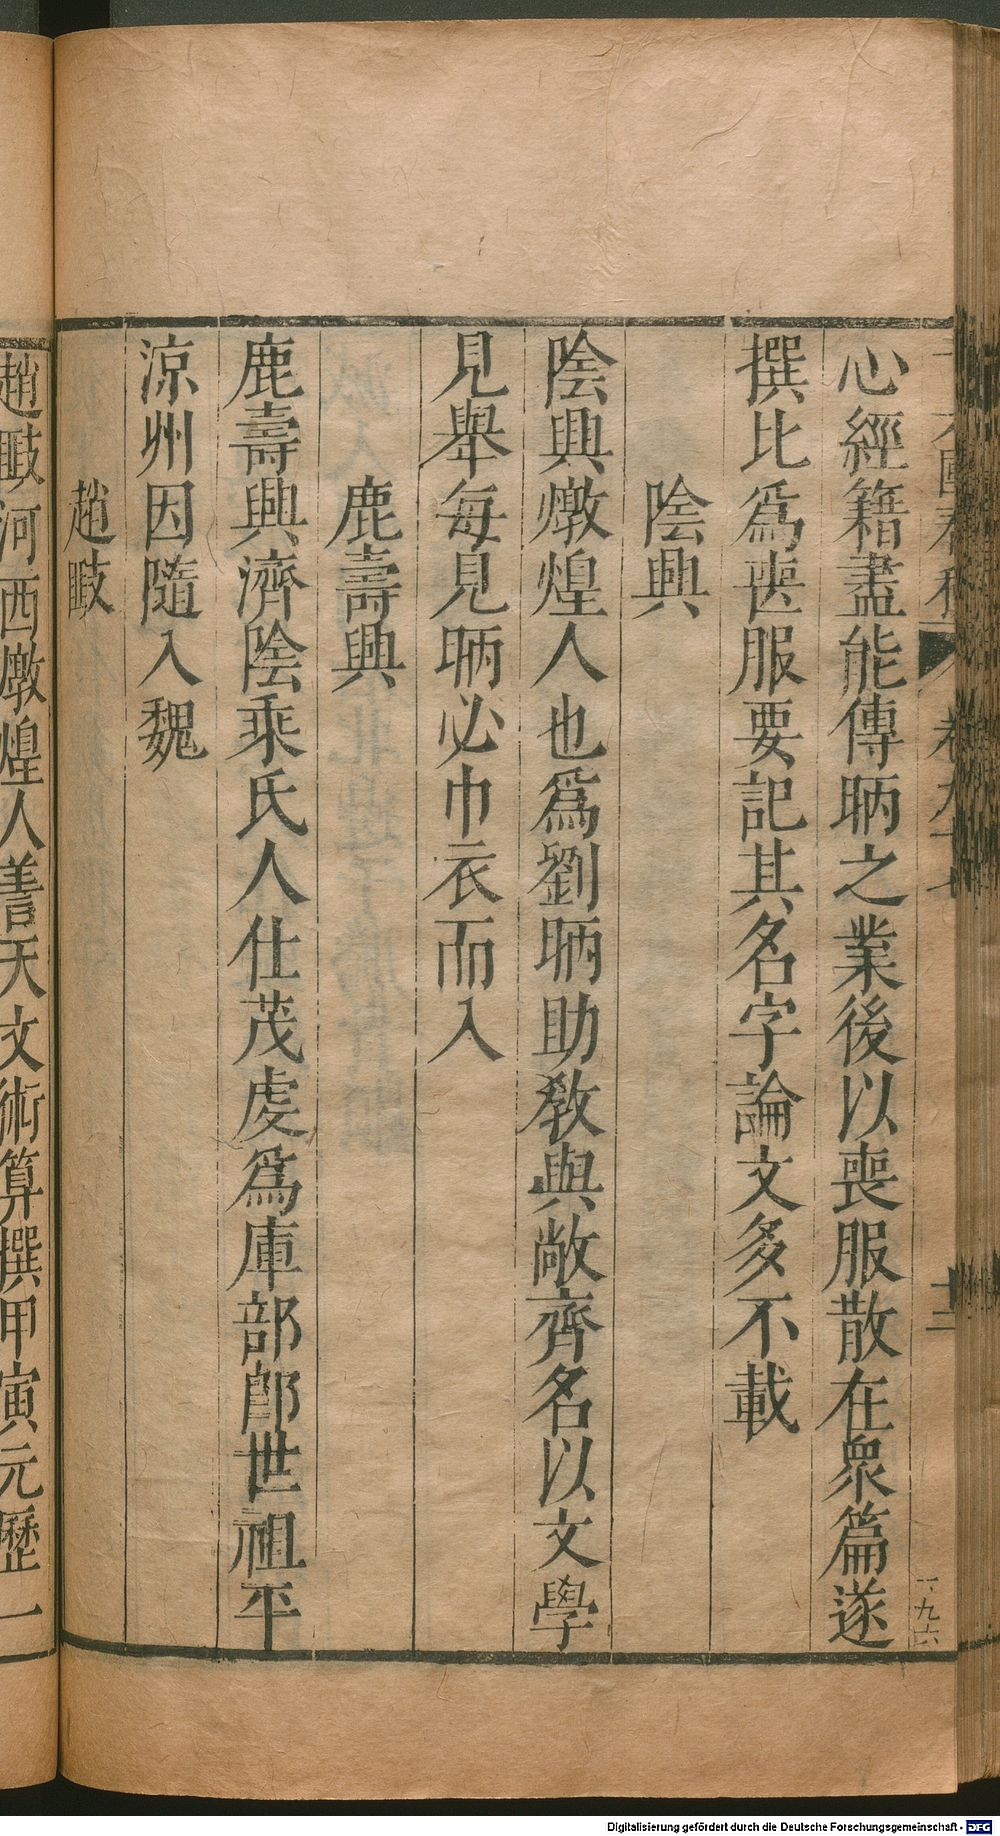 心經籍盡能傳昞之業後以喪服散在衆篇遂
撰比爲喪服要記其名字論文多不載
陰興
陰興燉煌人也爲劉昞助敎與敞齊名以文學
見舉每見昞必巾衣而入
鹿壽興
鹿壽興濟陰乘氏人仕茂虔爲庫部郎世祖平
涼州因隨入魏
趙𣀒
趙𣀒河西燉煌人善天文術算撰甲寅元歷一
十二
一九六
Digitalisierung gefördert durch die Deutsche Forschungsgemeinschaft - DFG